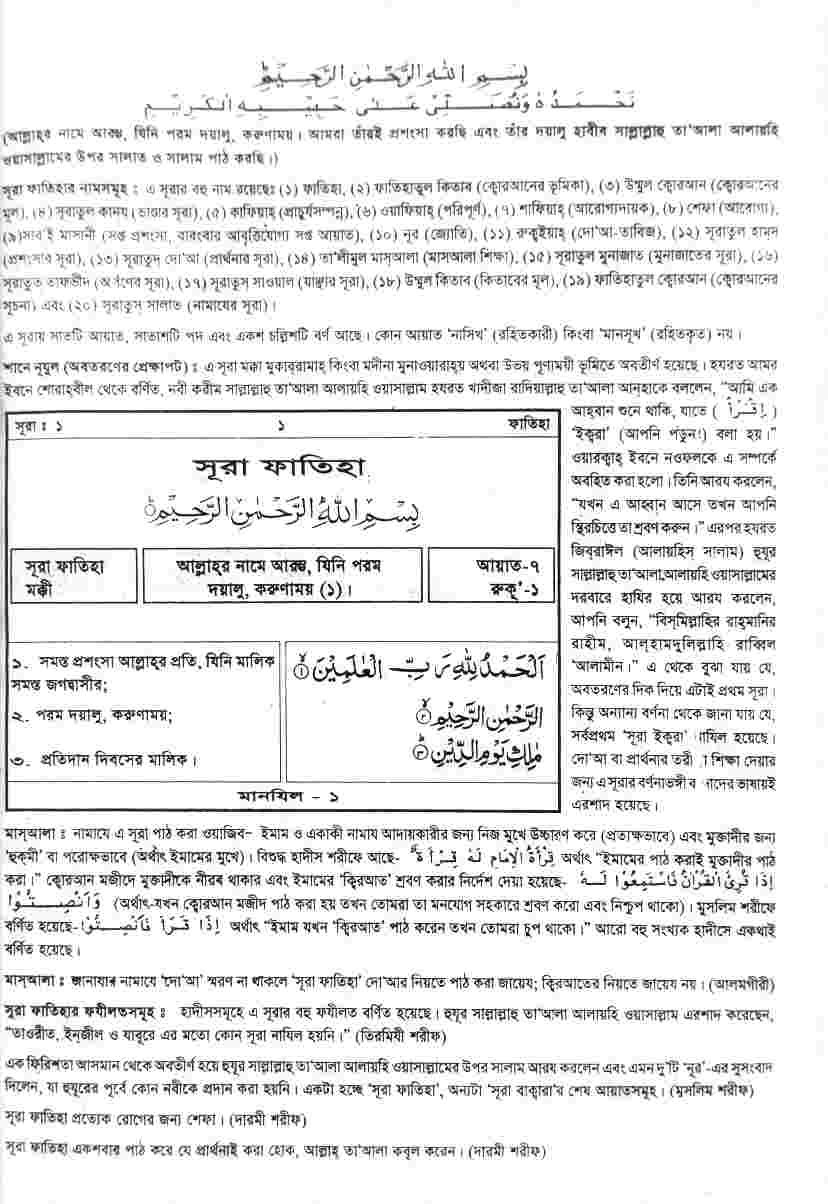 بِسْمِ اللهِ الرَّحْمٰنِ الرَّحِيْمِ
نَحْمَدُهٗ وَنُصَلِّىْ عَلٰى حَبِيْبِهِ الْكَرِيْمِ
(আল্লাহ্‌র নামে আরম্ভ, যিনি পরম দয়ালু, করুণাময়। আমরা তাঁরই প্রশংসা করছি এবং তাঁর দয়ালু হাবীব সাল্লাল্লাহু তা'আলা আলায়হি
ওয়াসাল্লামের উপর সালাত ও সালাম পাঠ করছি।)
সূরা ফাতিহার নামসমূহ : এ সূরার বহু নাম রয়েছেঃ (১) ফাতিহা, (২) ফাতিহাতুল কিতাব (ক্বোরআনের ভূমিকা), (৩) উম্মুল ক্বোরআন (ক্বোরআনের
মূল), (৪) সূরাতুল কানয (ভাণ্ডার সূরা), (৫) কাফিয়াহ্ (প্রাচুর্যসম্পন্ন), (৬) ওয়াফিয়াহ্ (পরিপূর্ণ), (৭) শাফিয়াহ্ (আরোগ্যদায়ক), (৮) শেফা (আরোগ্য),
(৯) সাব'ই মাসানী (সপ্ত প্রশংসা, বারংবার আবৃত্তিযোগ্য সপ্ত আয়াত), (১০) নূর (জ্যোতি), (১১) রুক্বইয়াহ্ (দো'আ-তাবিজ), (১২) সূরাতুল হাম্‌দ
(প্রশংসার সূরা), (১৩) সূরাতুদ্ দো'আ (প্রার্থনার সূরা), (১৪) তা'লীমুল মাস্আলা (মাসআলা শিক্ষা), (১৫) সূরাতুল মুনাজাত (মুনাজাতের সূরা), (১৬)
সূরাতুত তাফভীদ (অর্পণের সূরা), (১৭) সূরাতুস্ সাওয়াল (যাঞ্চার সূরা), (১৮) উম্মুল কিতাব (কিতাবের মূল), (১৯) ফাতিহাতুল ক্বোরআন (ক্বোরআনের
সূচনা) এবং (২০) সূরাতুস্ সালাত (নামাযের সূরা)।
এ সূরায় সাতটি আয়াত, সাতাশটি পদ এবং একশ চল্লিশটি বর্ণ আছে। কোন আয়াত 'নাসিখ' (রহিতকারী) কিংবা 'মানসূখ' (রহিতকৃত) নয়।
শানে নুযূল (অবতরণের প্রেক্ষাপট) : এ সূরা মক্কা মুকাররামাহ্ কিংবা মদীনা মুনাওয়ারাহ্‌য় অথবা উভয় পূণ্যময়ী ভূমিতে অবতীর্ণ হয়েছে। হযরত আমর
ইবনে শোরাহ্‌বীল থেকে বর্ণিত, নবী করীম সাল্লাল্লাহু তা'আলা আলায়হি ওয়াসাল্লাম হযরত খাদীজা রাদিয়াল্লাহু তা'আলা আন্‌হাকে বললেন, "আমি এক
আহ্বান শুনে থাকি, যাতে ( اِقْرَأْ )
'ইক্বরা' (আপনি পড়ুন!) বলা হয়।"
ওয়ারক্বাহ্ ইবনে নওফলকে এ সম্পর্কে
অবহিত করা হলো। তিনি আরয করলেন,
"যখন এ আহ্বান আসে তখন আপনি
স্থিরচিত্তে তা শ্রবণ করুন।" এরপর হযরত
জিব্‌রাঈল (আলায়হিস্ সালাম) হুযূর
সাল্লাল্লাহু তা'আলা আলায়হি ওয়াসাল্লামের
দরবারে হাযির হয়ে আরয করলেন,
আপনি বলুন, "বিস্‌মিল্লাহির রাহ্‌মানির
রাহীম, আল্‌হামদুলিল্লাহি রাব্বিল
'আলামীন।" এ থেকে বুঝা যায় যে,
অবতরণের দিক দিয়ে এটাই প্রথম সূরা।
কিন্তু অন্যান্য বর্ণনা থেকে জানা যায় যে,
সর্বপ্রথম 'সূরা ইক্বরা' হয়েছে।
দো'আ বা প্রার্থনার শিক্ষা দেয়ার
জন্য এ সূরার বর্ণনাভঙ্গী ভাষায়ই
এরশাদ হয়েছে।
সূরা : ১ ১ ফাতিহা
সূরা ফাতিহা
بِسْمِ اللهِ الرَّحْمٰنِ الرَّحِيْمِ
সূরা ফাতিহা
মক্কী
আল্লাহ্‌র নামে আরম্ভ, যিনি পরম
দয়ালু, করুণাময় (১)।
আয়াত-৭
রুকূ'-১
১. সমস্ত প্রশংসা আল্লাহ্‌র প্রতি, যিনি মালিক
সমস্ত জগদ্বাসীর;
২. পরম দয়ালু, করুণাময়;
৩. প্রতিদান দিবসের মালিক।
اَلْحَمْدُ لِلّٰهِ رَبِّ الْعٰلَمِيْنَ ۝١
الرَّحْمٰنِ الرَّحِيْمِ ۝٢
مٰلِكِ يَوْمِ الدِّيْنِ ۝٣
মানযিল - ১
মাস্আলা : নামাযে এ সূরা পাঠ করা ওয়াজিব– ইমাম ও একাকী নামায আদায়কারীর জন্য নিজ মুখে উচ্চারণ করে (প্রত্যক্ষভাবে) এবং মুক্তাদীর জন্য
'হুক্‌মী' বা পরোক্ষভাবে (অর্থাৎ ইমামের মুখে)। বিশুদ্ধ হাদীস শরীফে আছে- قِرْأَةُ الْاِمَامِ لَهٗ قِرْأَةٌ অর্থাৎ "ইমামের পাঠ করাই মুক্তাদীর পাঠ
করা।" ক্বোরআন মজীদে মুক্তাদীকে নীরব থাকার এবং ইমামের 'ক্বিরআত' শ্রবণ করার নির্দেশ দেয়া হয়েছে- اِذَا قُرِئَ الْقُرْاٰنُ فَاسْتَمِعُوْا لَهٗ
وَاَنْصِتُوْا (অর্থাৎ-যখন ক্বোরআন মজীদ পাঠ করা হয় তখন তোমরা তা মনযোগ সহকারে শ্রবণ করো এবং নিশ্চুপ থাকো)। মুসলিম শরীফে
বর্ণিত হয়েছে- اِذَا قَرَأَ فَاَنْصِتُوْا অর্থাৎ "ইমাম যখন 'ক্বিরআত' পাঠ করেন তখন তোমরা চুপ থাকো।" আরো বহু সংখ্যক হাদীসে একথাই
বর্ণিত হয়েছে।
মাস্আলা : জানাযার নামাযে 'দো'আ' স্মরণ না থাকলে 'সূরা ফাতিহা' দো'আর নিয়তে পাঠ করা জায়েয; ক্বিরআতের নিয়তে জায়েয নয়। (আলমগীরী)
সূরা ফাতিহার ফযীলতসমূহ : হাদীসসমূহে এ সূরার বহু ফযীলত বর্ণিত হয়েছে। হুযূর সাল্লাল্লাহু তা'আলা আলায়হি ওয়াসাল্লাম এরশাদ করেছেন,
"তাওরীত, ইন্‌জীল ও যাবূরে এর মতো কোন সূরা নাযিল হয়নি।" (তিরমিযী শরীফ)
এক ফিরিশতা আসমান থেকে অবতীর্ণ হয়ে হুযূর সাল্লাল্লাহু তা'আলা আলায়হি ওয়াসাল্লামের উপর সালাম আরয করলেন এবং এমন দু'টি 'নূর'-এর সুসংবাদ
দিলেন, যা হুযূরের পূর্বে কোন নবীকে প্রদান করা হয়নি। একটা হচ্ছে 'সূরা ফাতিহা', অন্যটা 'সূরা বাক্বারা'র শেষ আয়াতসমূহ। (মুসলিম শরীফ)
সূরা ফাতিহা প্রত্যেক রোগের জন্য শেফা। (দারমী শরীফ)
সূরা ফাতিহা একশবার পাঠ করে যে প্রার্থনাই করা হোক, আল্লাহ্ তা'আলা কবূল করেন। (দারমী শরীফ)